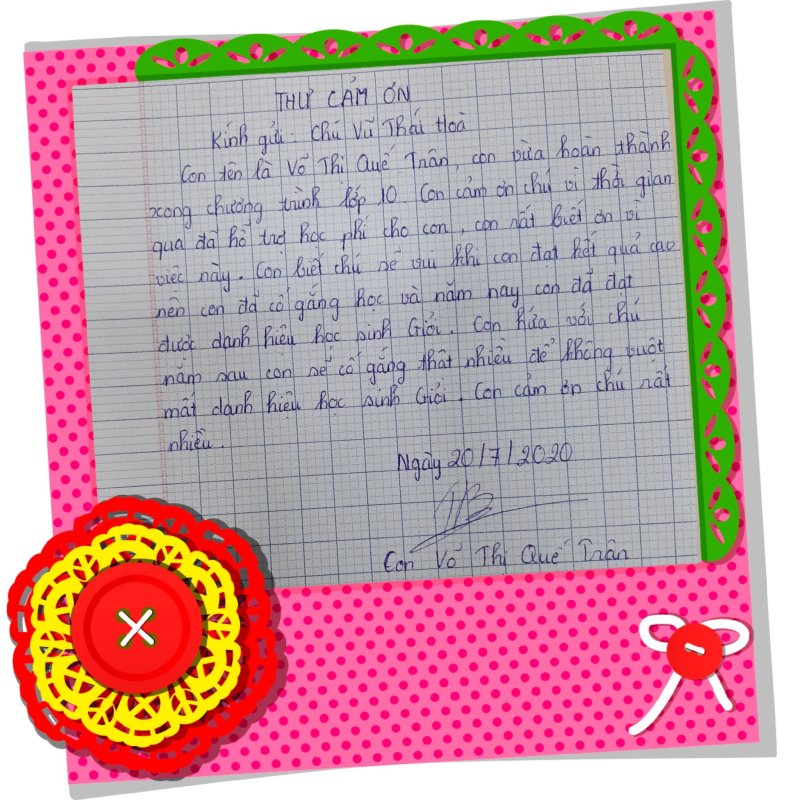 THƯ CẢM ƠN
Kính gửi: Chú Vũ Thái Hoà
Con tên là Võ Thị Quế Trân, con vừa hoàn thành
xong chương trình lớp 10. Con cảm ơn chú vì thời gian
qua đã hỗ trợ học phí cho con, con rất biết ơn vì
việc này. Con biết chú sẽ vui khi con đạt kết quả cao
nên con đã cố gắng học và năm nay con đã đạt
được danh hiệu học sinh Giỏi. Con hứa với chú
năm sau con sẽ cố gắng thật nhiều để không vuột
mất danh hiệu học sinh Giỏi. Con cảm ơn chú rất
nhiều.
Ngày 20/7/2020
Con Võ Thị Quế Trân